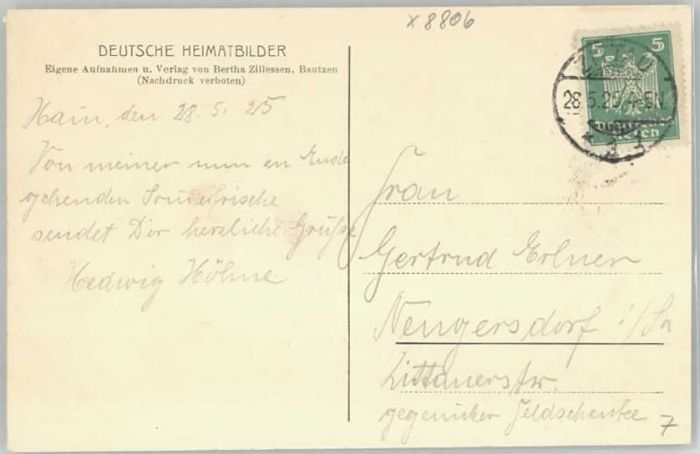 x 8806
DEUTSCHE HEIMATBILDER
Eigene Aufnahmen u. Verlag von Bertha Zillessen, Bautzen
(Nachdruck verboten)
Hain, den 28. 5. 25
Von meiner nun en Ende
gehenden Sommerfrische
sendet Dir herzliche Grüße
Hedwig Höhne
5 5
28.5.25 4-5N
Frau
Gertrud Erlner
Neugersdorf i/Sa
Zittauerstr.
gegenüber Feldschenke
7